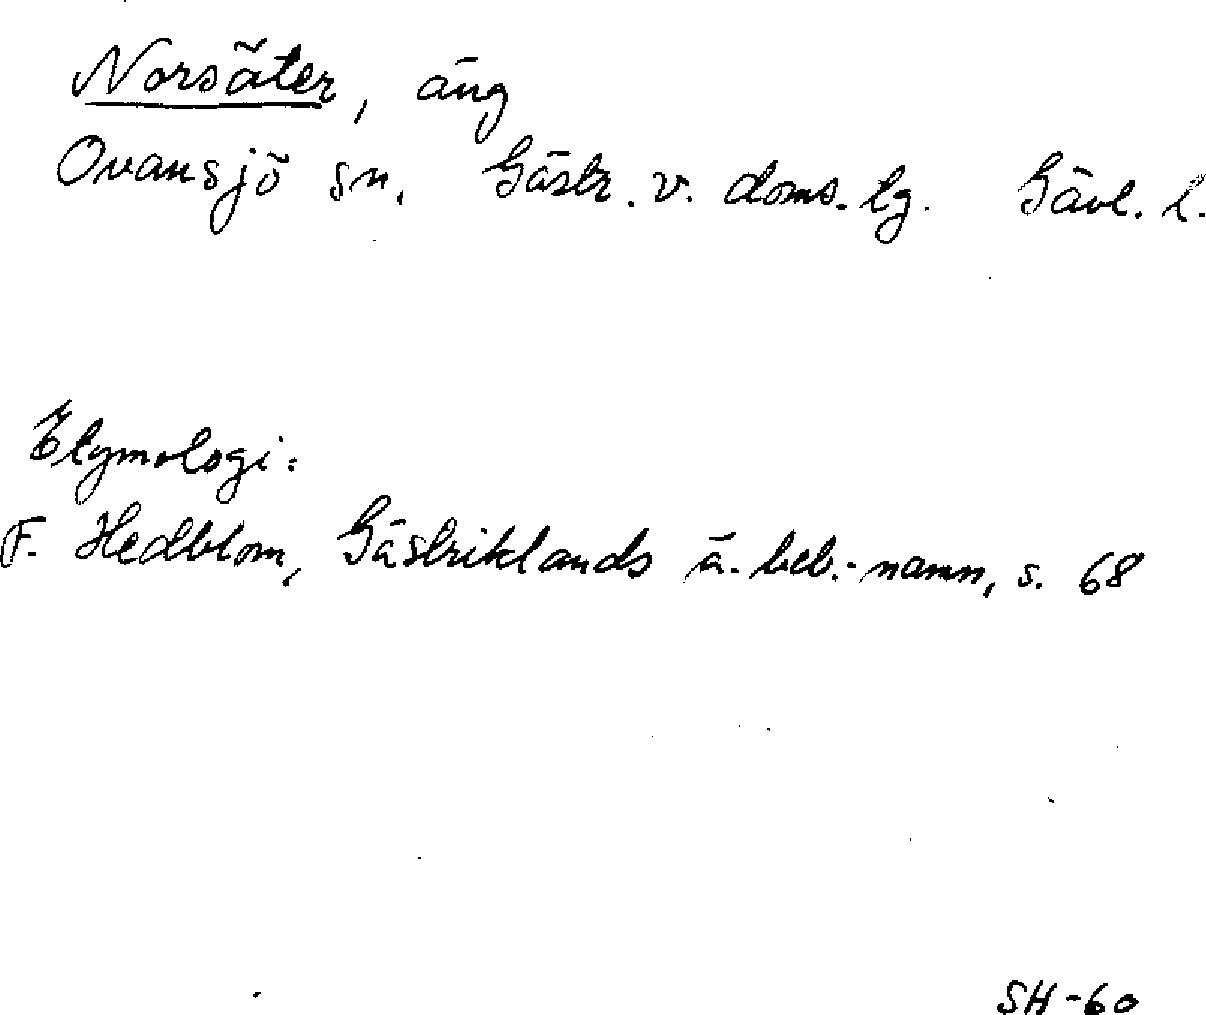 Norsäter, äng
Ovansjö sn. Gästr. v. doms. lg. Gävl. l.
Etymologi:
F. Hedblom, Gästriklands ä. beb.-namn, s. 68
SH-60